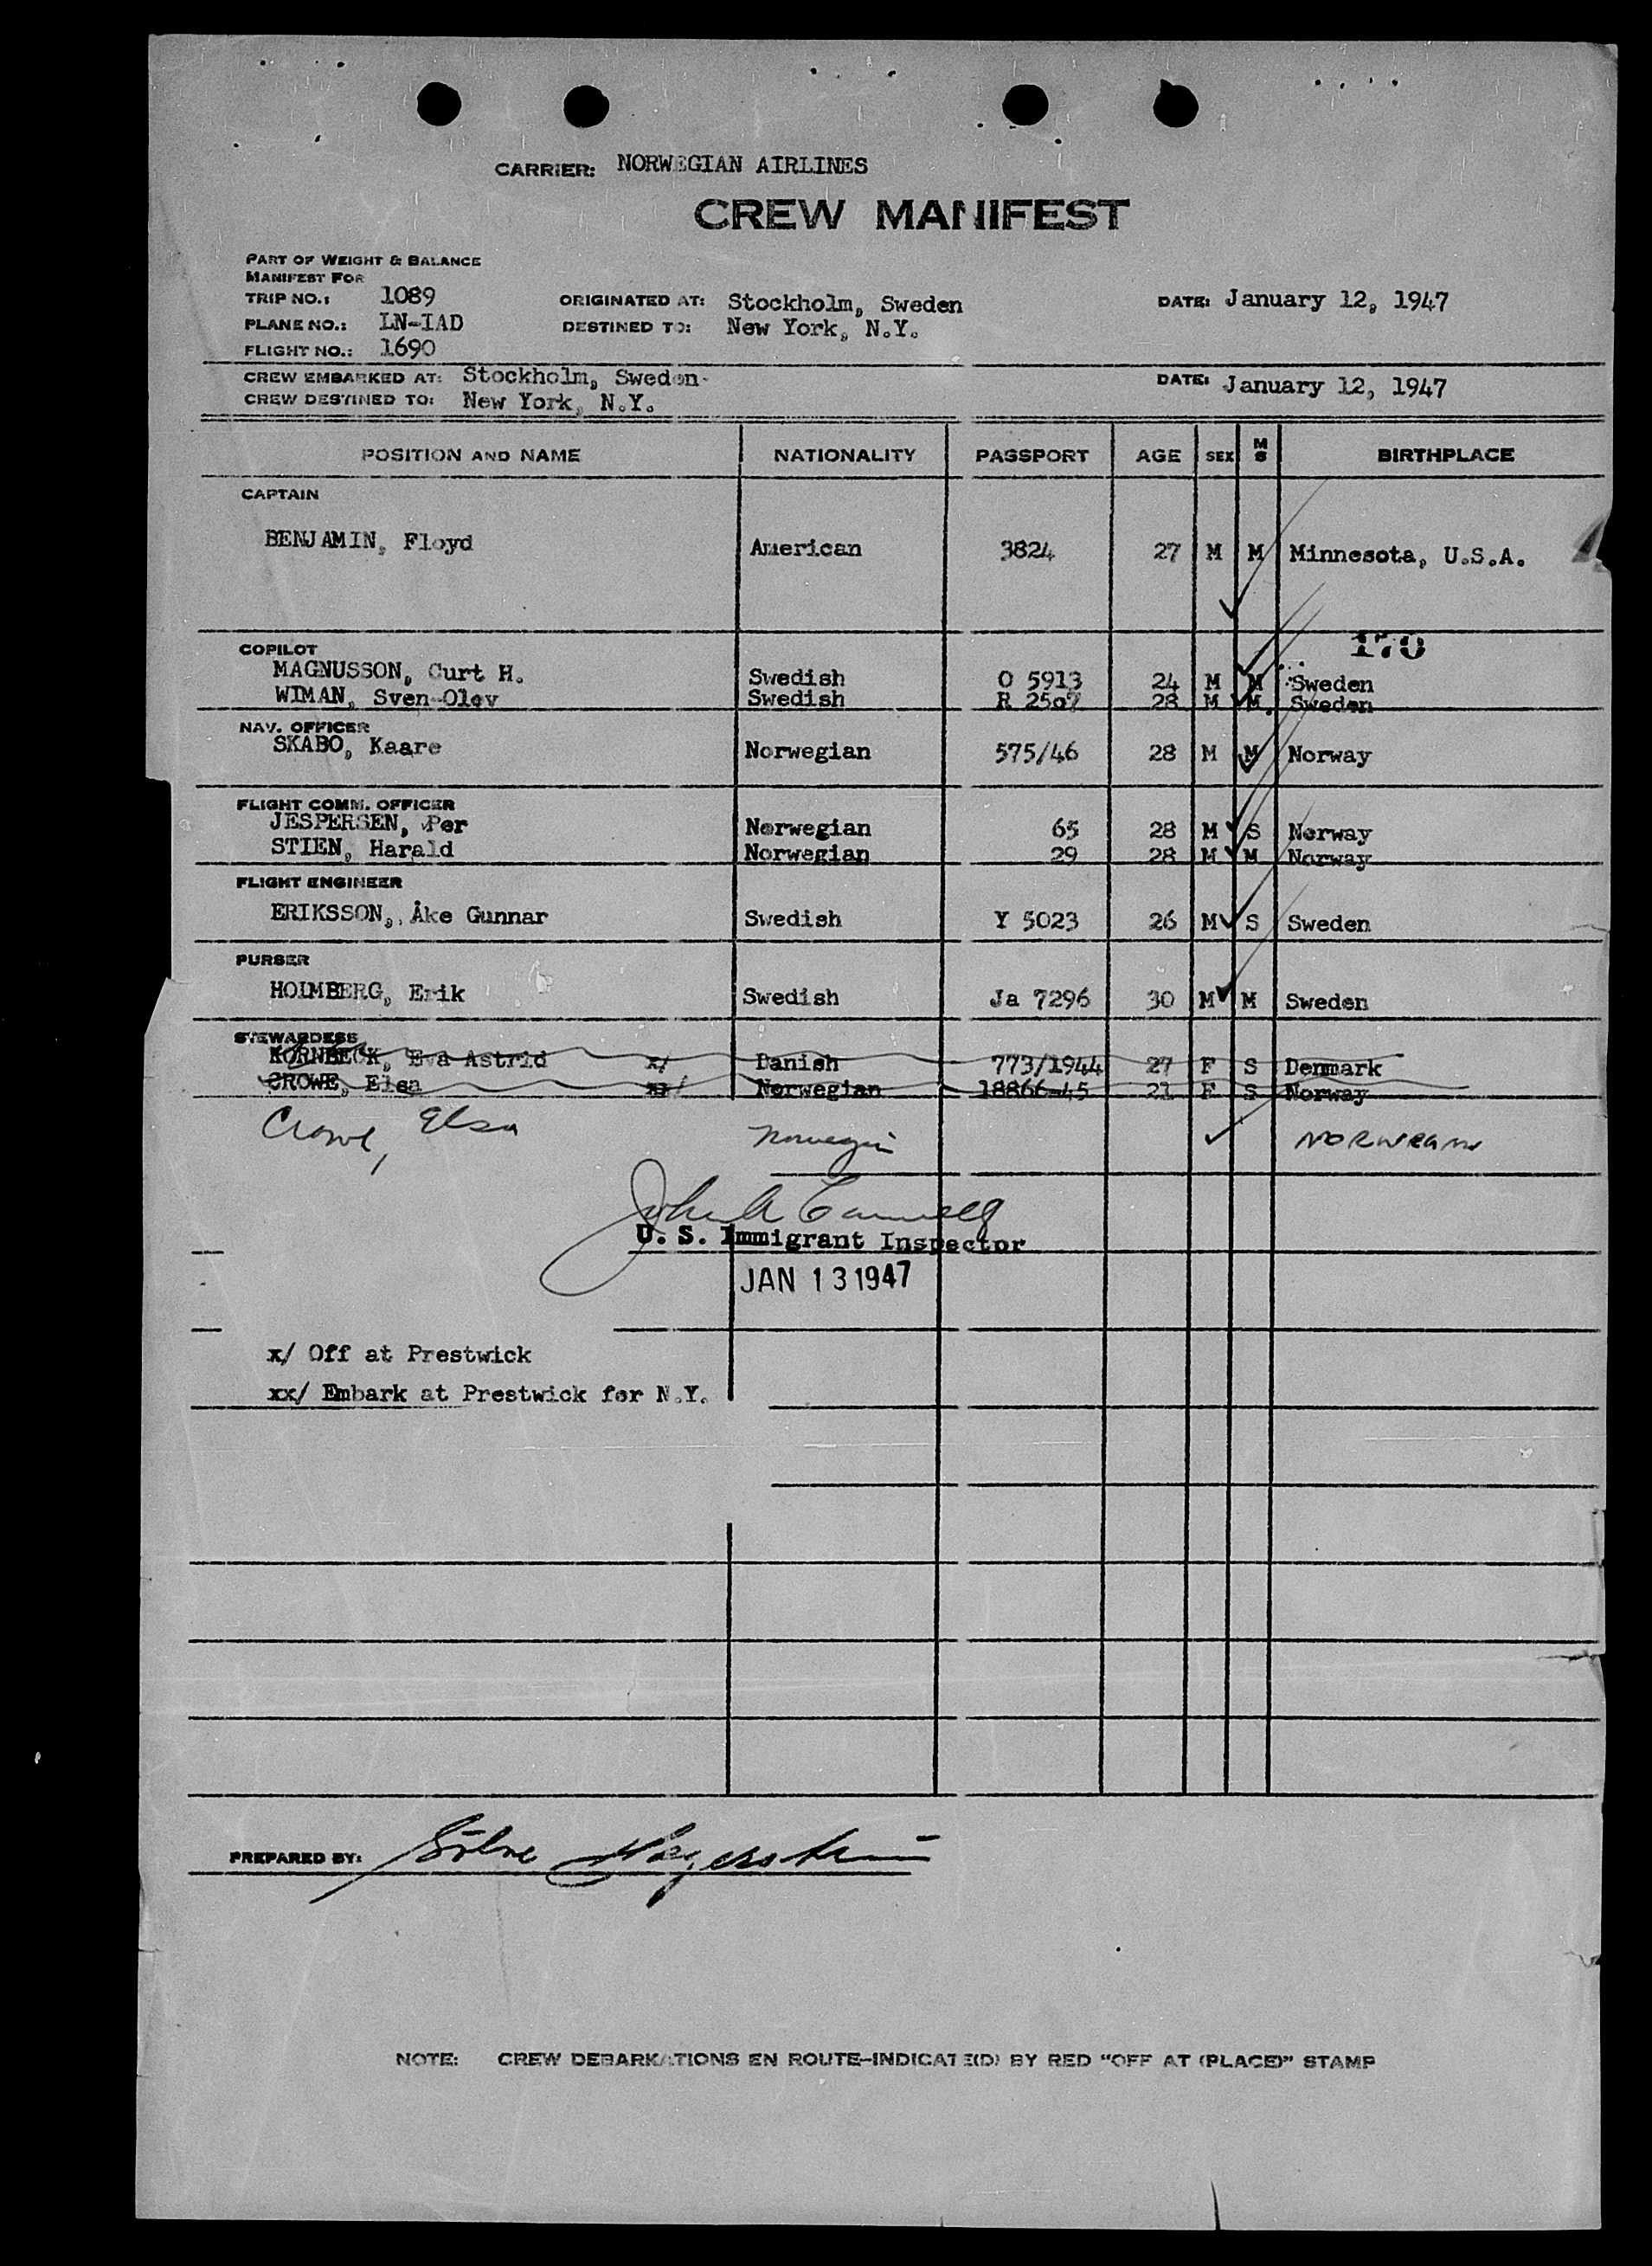 CARRIER: NORWEGIAN AIRLINES
CREW MANIFEST
PART OF WEIGHT & BALANCE
MANIFEST FOR
TRIP NO.: 1089 ORIGINATED AT: Stockholm, Sweden DATE: January 12, 1947
PLANE NO.: LN-IAD DESTINED TO: New York, N.Y.
FLIGHT NO.: 1690
CREW EMBARKED AT: Stockholm, Sweden DATE: January 12, 1947
CREW DESTINED TO: New York, N.Y.
POSITION AND NAME NATIONALITY PASSPORT AGE SEX M S BIRTHPLACE
CAPTAIN
BENJAMIN, Floyd American 3824 27 M M Minnesota, U.S.A.
170
COPILOT
MAGNUSSON, Curt H. Swedish O 5913 24 M M Sweden
WIMAN, Sven-Olov Swedish R 2507 28 M M Sweden
NAV. OFFICER
SKABO, Kaare Norwegian 575/46 28 M M Norway
FLIGHT COMM. OFFICER
JESPERSEN, Per Norwegian 65 28 M S Norway
STIEN, Harald Norwegian 29 28 M M Norway
FLIGHT ENGINEER
ERIKSSON, Åke Gunnar Swedish Y 5023 26 M S Sweden
PURSER
HOLMBERG, Erik Swedish Ja 7296 30 M M Sweden
STEWARDESS
KORNBECK, Eva Astrid x/ Danish 773/1944 27 F S Denmark
CROWE, Elsa xx/ Norwegian 18866-45 21 F S Norway
Crowe, Elsa Norwegian NORWEGIAN
John A
U. S. Immigrant Inspector
JAN 13 1947
x/ Off at Prestwick
xx/ Embark at Prestwick for N.Y.
PREPARED BY:
NOTE: CREW DEBARKATIONS EN ROUTE-INDICATE(D) BY RED "OFF AT (PLACE)" STAMP